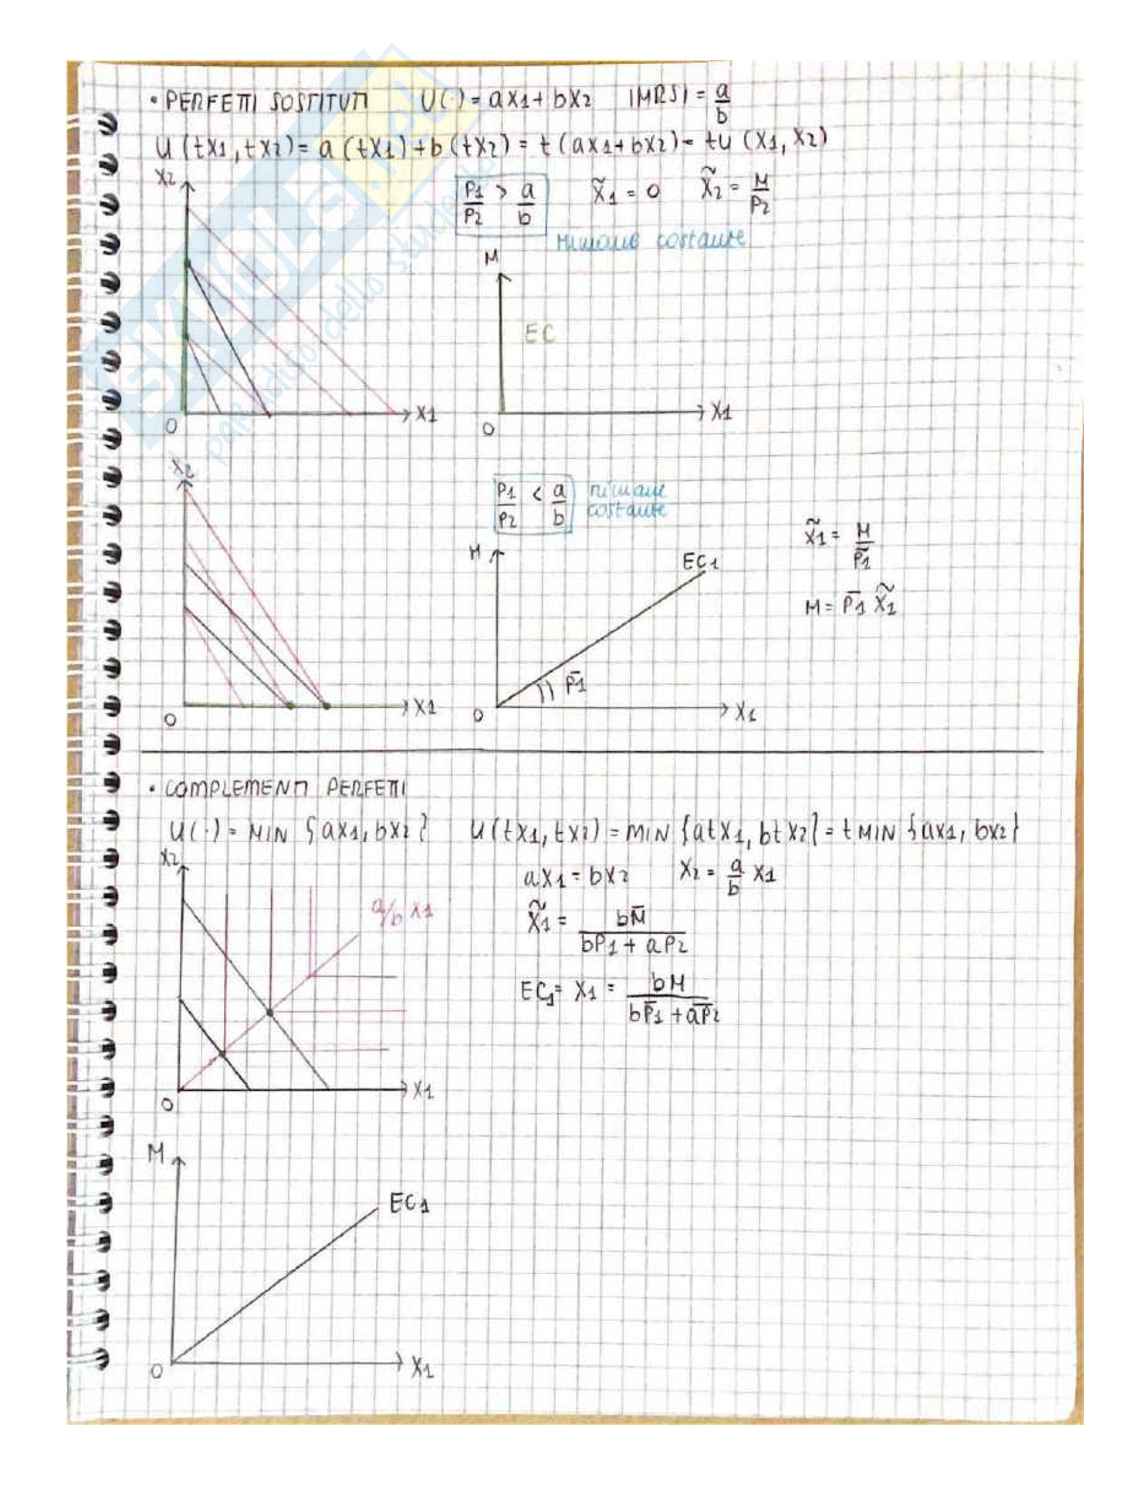 • PERFETTI SOSTITUTI U(·) = ax1 + bx2 |MRS| = a/b
U(tx1, tx2) = a(tx1) + b(tx2) = t(ax1 + bx2) = tU(x1, x2)
x2
P1/P2 > a/b x̃1 = 0 x̃2 = M/P2
rimane costante
M
EC
x1
0
x1
0
x2
P1/P2 < a/b rimane costante
x̃1 = M/P̄1
M
EC1
M = P̄1 x̃1
P̄1
x1
0
x1
0
• COMPLEMENTI PERFETTI
U(·) = MIN {ax1, bx2} U(tx1, tx2) = MIN {atx1, btx2} = t MIN {ax1, bx2}
x2
ax1 = bx2 x2 = a/b x1
a/b x1
x̃1 = bM̄/(bP1 + aP2)
EC1 = x1 = bM/(bP̄1 + aP̄2)
x1
0
M
EC1
0
x1
SKUOLA
paradiso dello studente